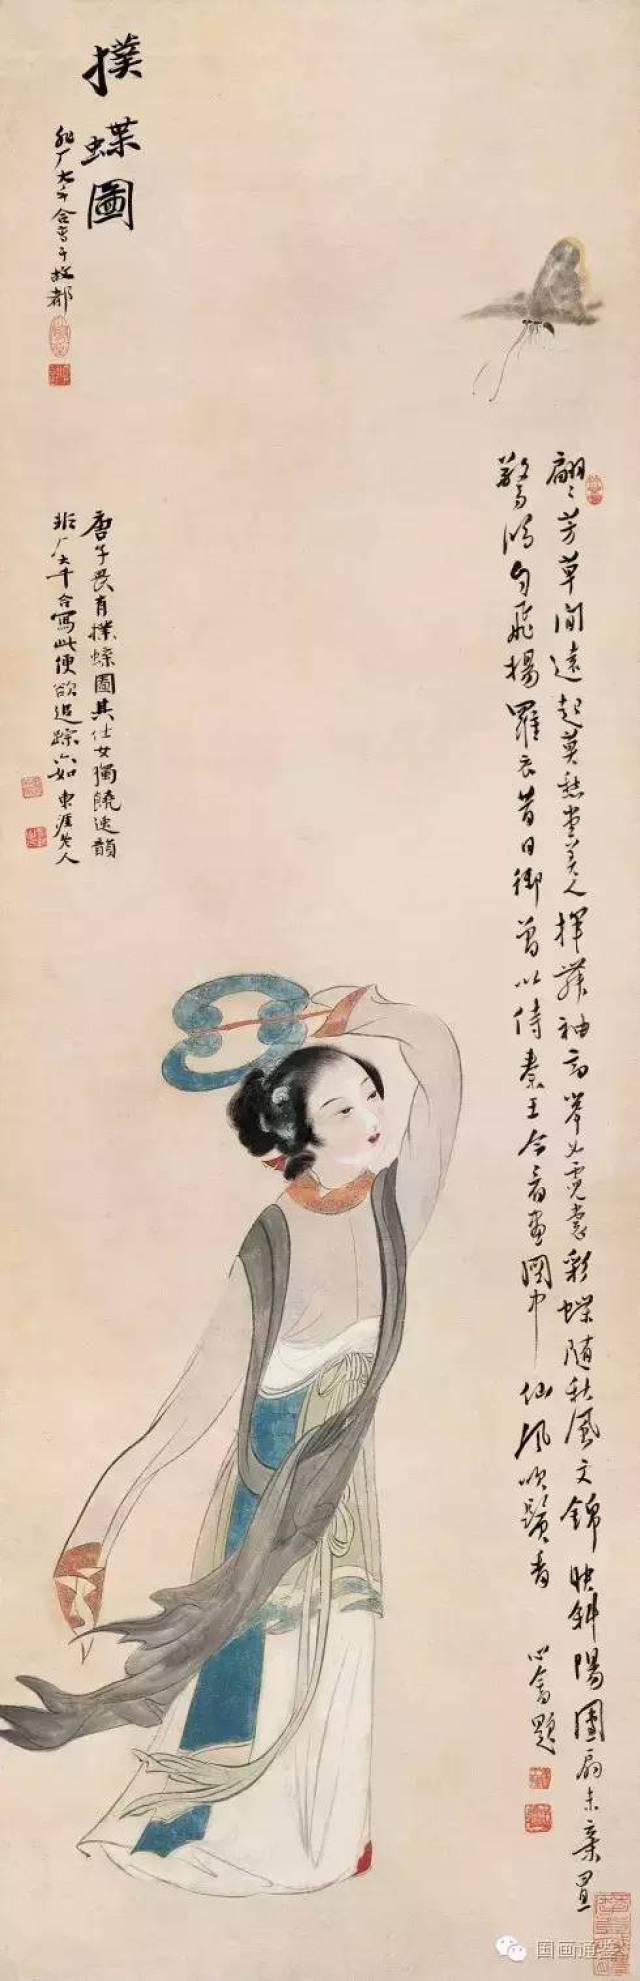 撲蝶圖
非厂大千合寫于故都
翩〻芳草間遠起莫愁堂美人揮舞袖高舉如霓裳彩蝶隨秋風文錦映斜陽團扇未棄置
驚鴻自飛揚羅衣昔日御曾以侍秦王今看畫圖中仙風吹鬢香
心畬題
唐子畏有撲蝶圖其仕女獨饒逸韻
非厂大千合寫此便欲追踪六如 東涯老人
国画通鉴